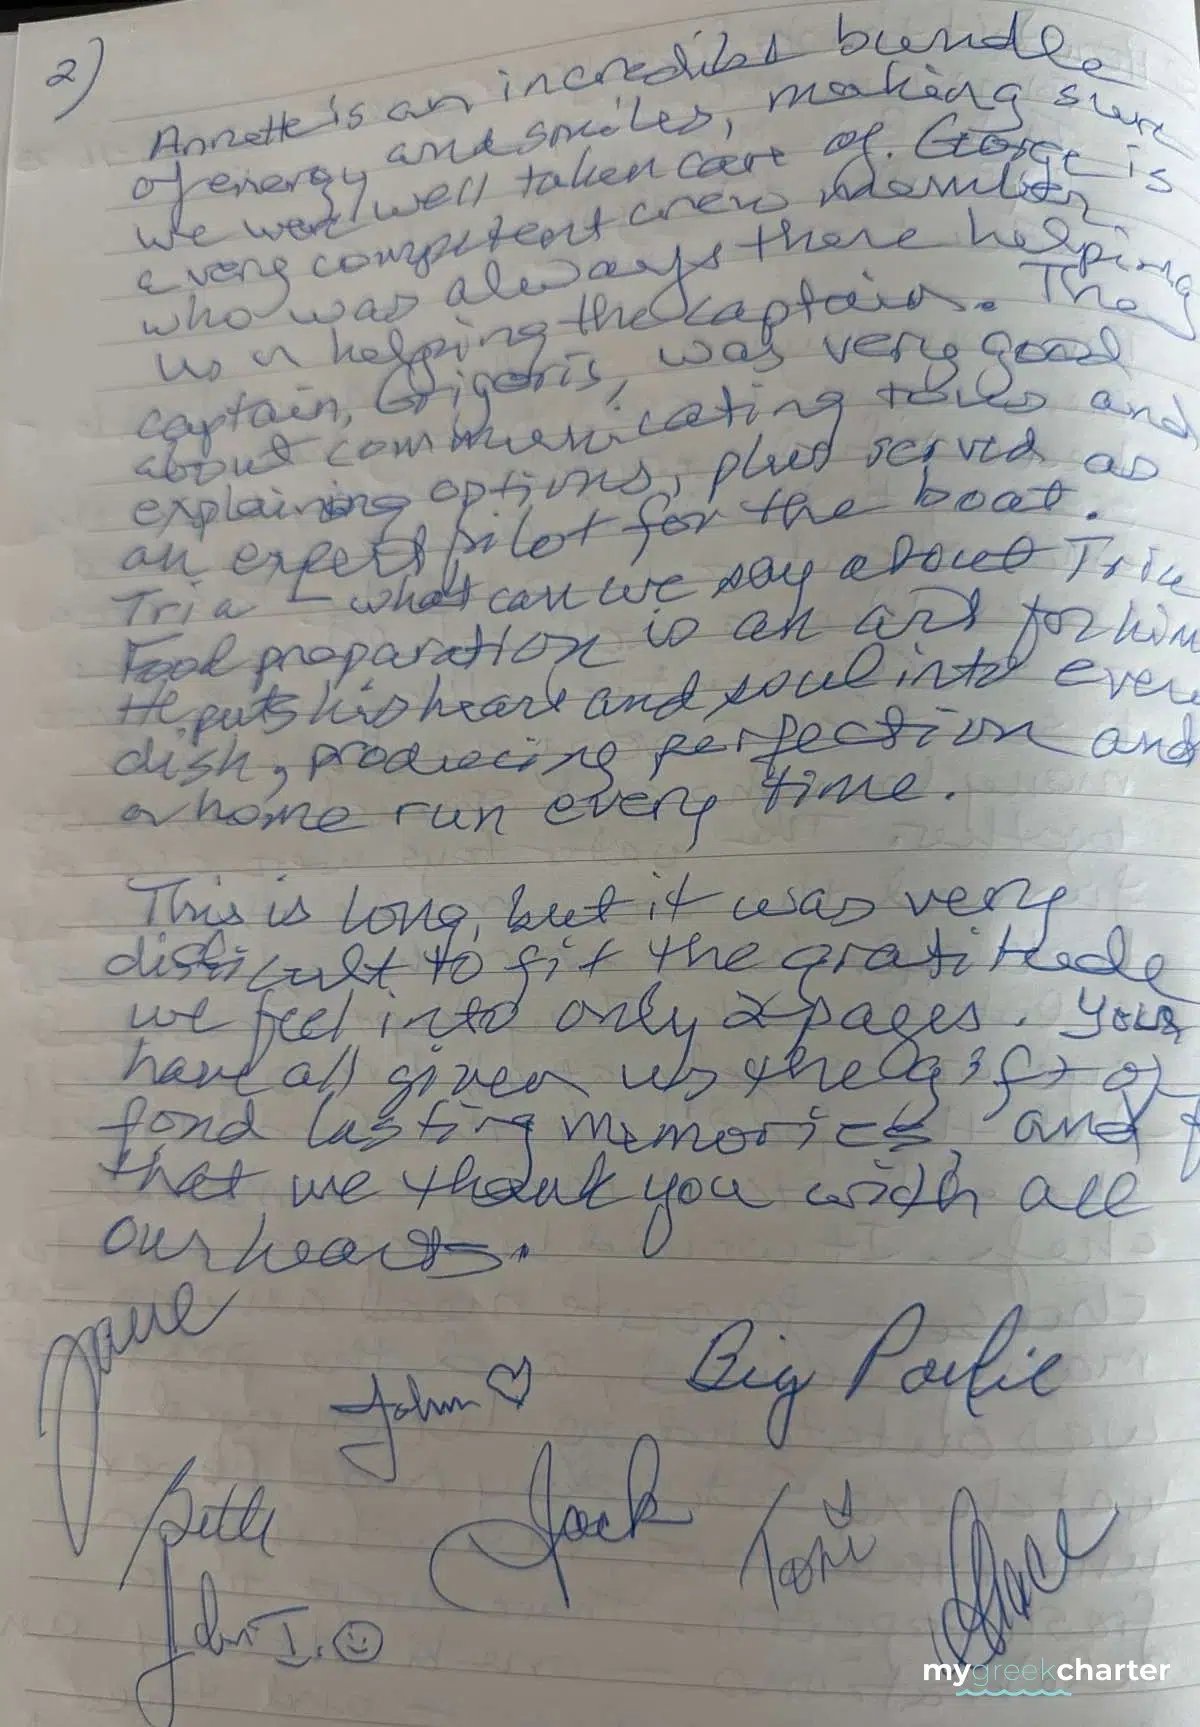 2)
Annette is an incredible bundle
of energy and smiles, making sure
we were well taken care of. George is
a very competent crew member
who was always there helping
us or helping the captain. The
captain, Grigoris, was very good
about communicating and
explaining options, plus served as
an expert pilot for the boat.
Tria - what can we say about Tria
Food preparation is an art for him
He puts his heart and soul into every
dish, producing perfection and
a home run every time.
This is long, but it was very
difficult to fit the gratitude
we feel into only 2 pages. You
have all given us the gift of
fond lasting memories, and f
that we thank you with all
our hearts.
John ♡
Big Paulie
Beth
Jack
Toni
John I. ☺
Grace
mygreekcharter